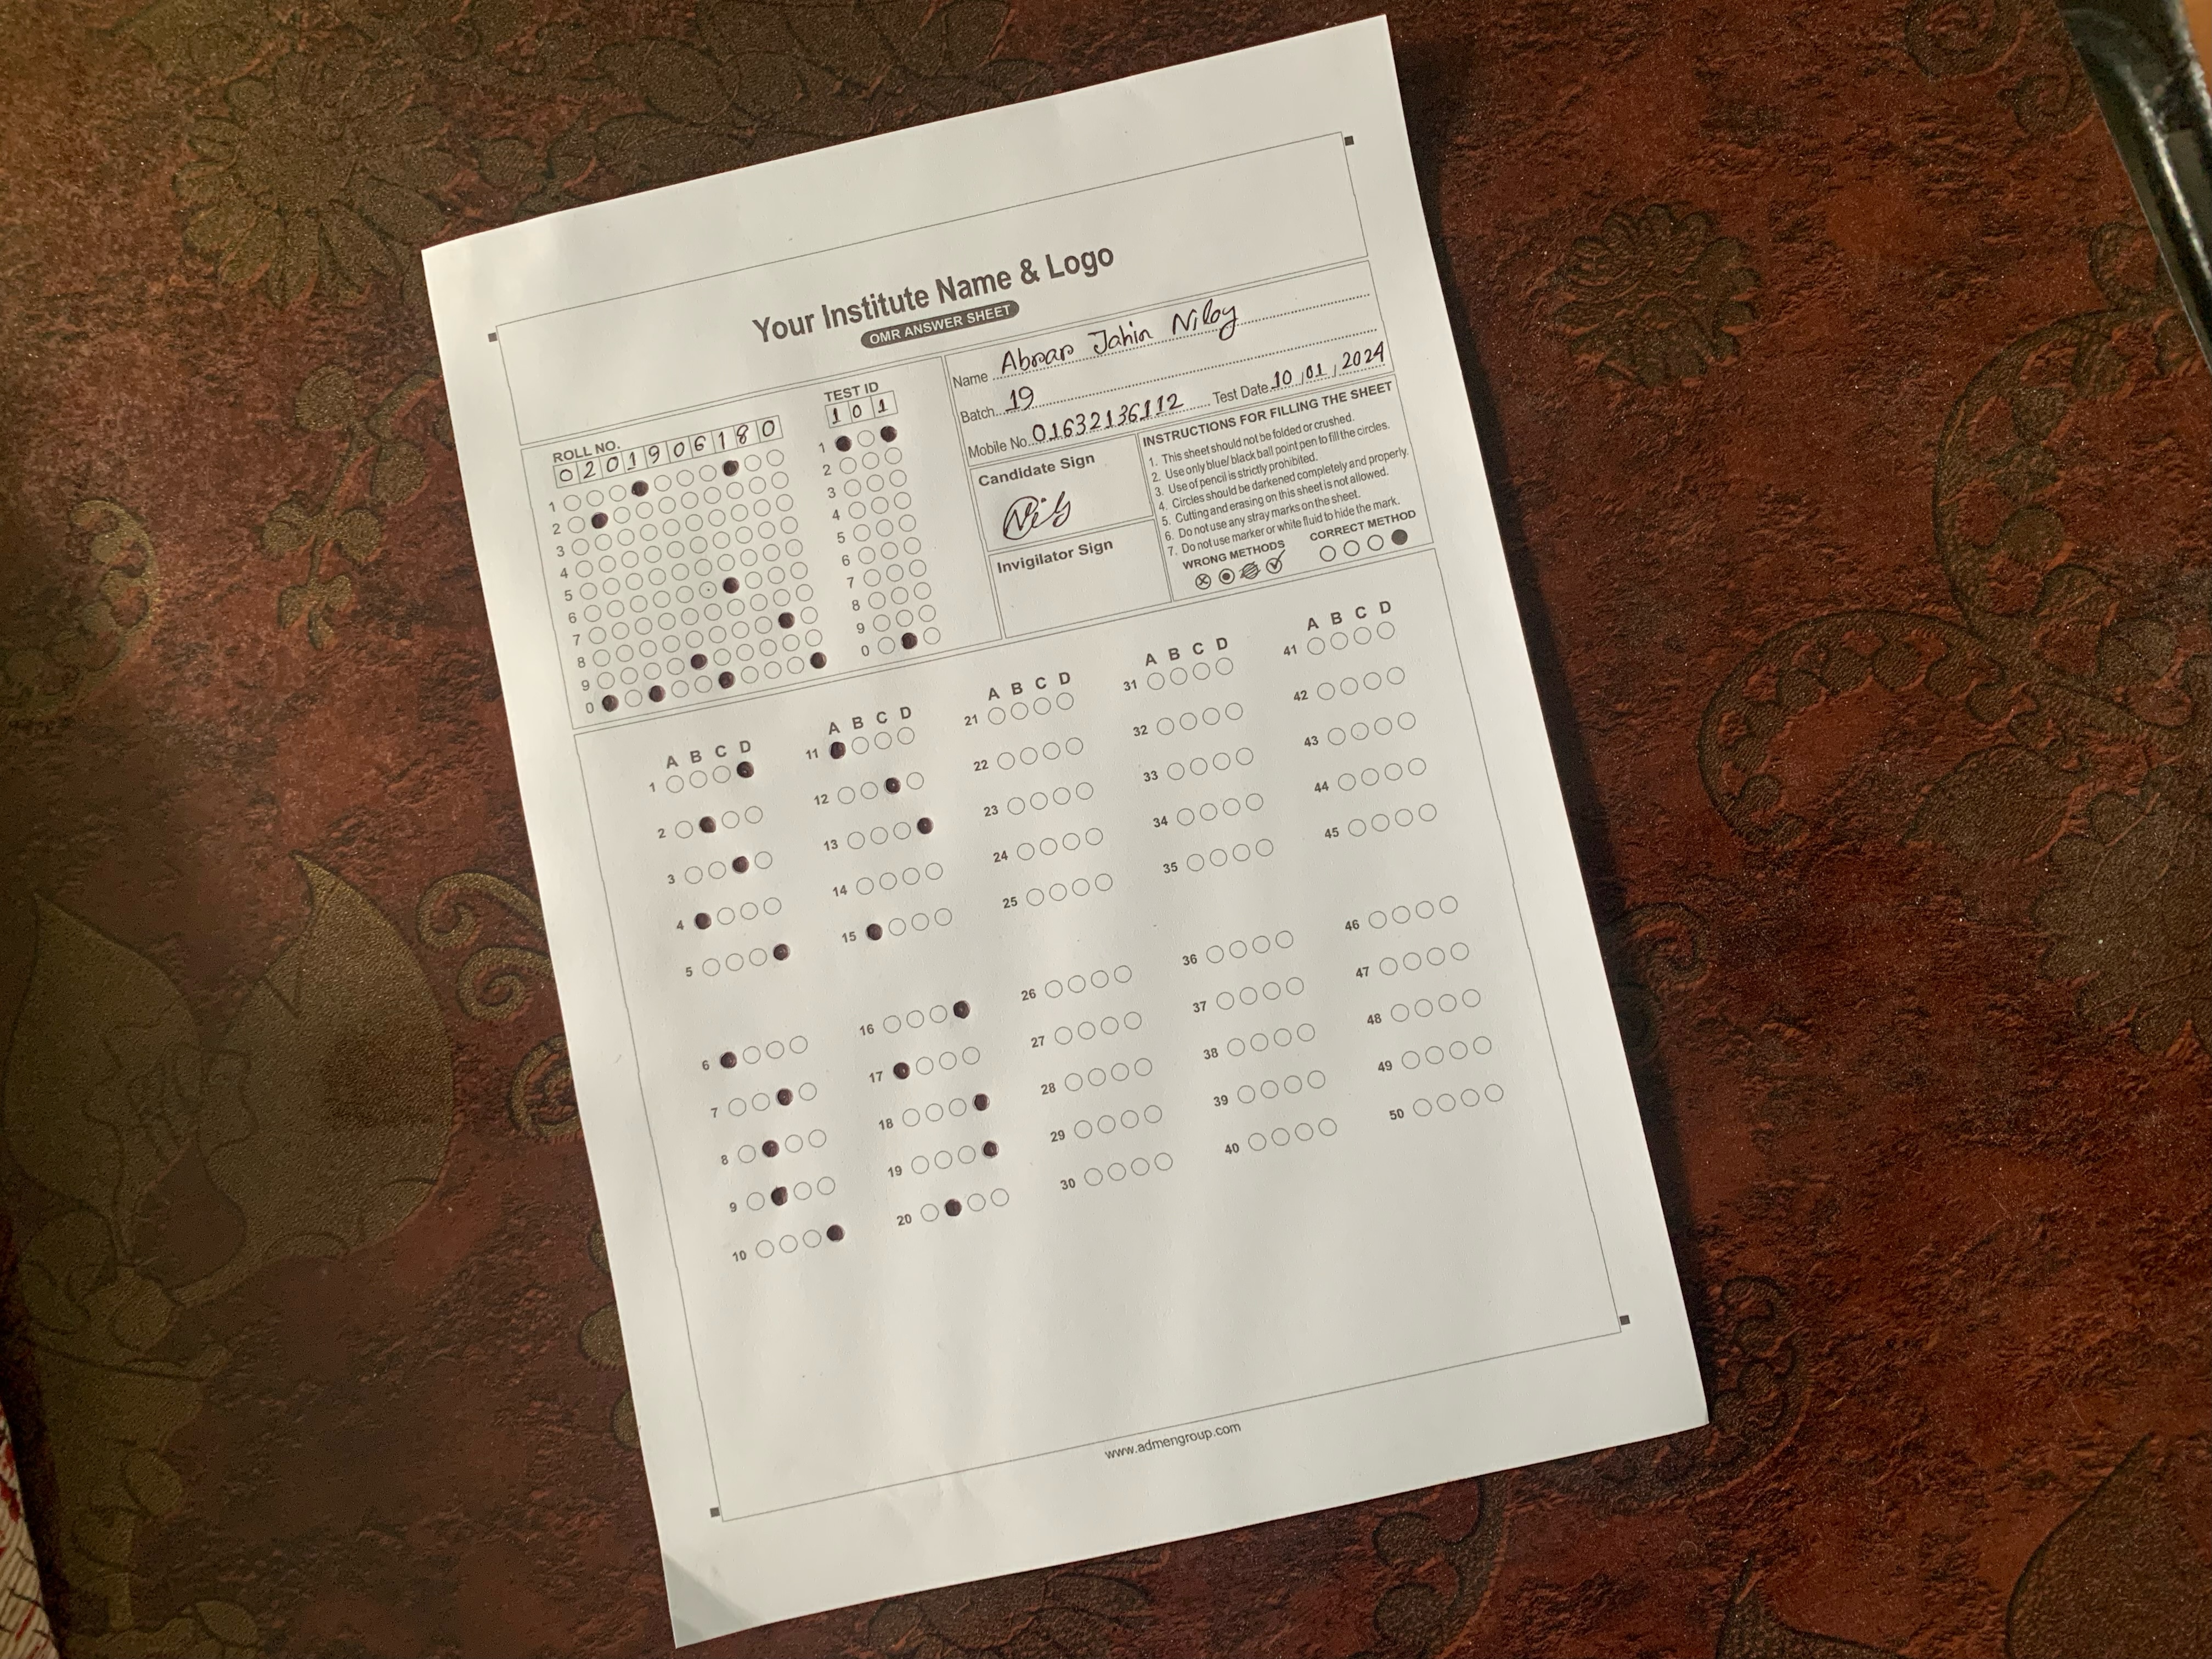 Your Institute Name & Logo
OMR ANSWER SHEET
ROLL NO.
0 2 0 1 9 0 6 1 8 0
1
2
3
4
5
6
7
8
9
0
TEST ID
1 0 1
1
2
3
4
5
6
7
8
9
0
Name Abrar Jahin Niloy
Batch 19
Mobile No. 01632136112 Test Date 10 / 01 / 2024
Candidate Sign
Invigilator Sign
INSTRUCTIONS FOR FILLING THE SHEET
1. This sheet should not be folded or crushed.
2. Use only blue/ black ball point pen to fill the circles.
3. Use of pencil is strictly prohibited.
4. Circles should be darkened completely and properly.
5. Cutting and erasing on this sheet is not allowed.
6. Do not use any stray marks on the sheet.
7. Do not use marker or white fluid to hide the mark.
WRONG METHODS CORRECT METHOD
A B C D
1
2
3
4
5
6
7
8
9
10
A B C D
11
12
13
14
15
16
17
18
19
20
A B C D
21
22
23
24
25
26
27
28
29
30
A B C D
31
32
33
34
35
36
37
38
39
40
A B C D
41
42
43
44
45
46
47
48
49
50
www.admengroup.com